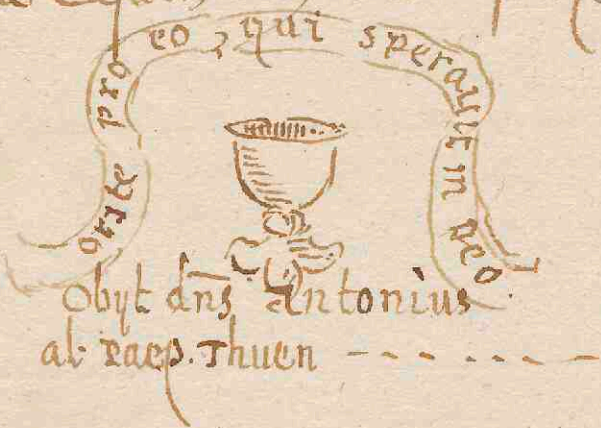 orate pro eo, qui speravit in deo
Obijt dns Antonius
al raep. Thuen